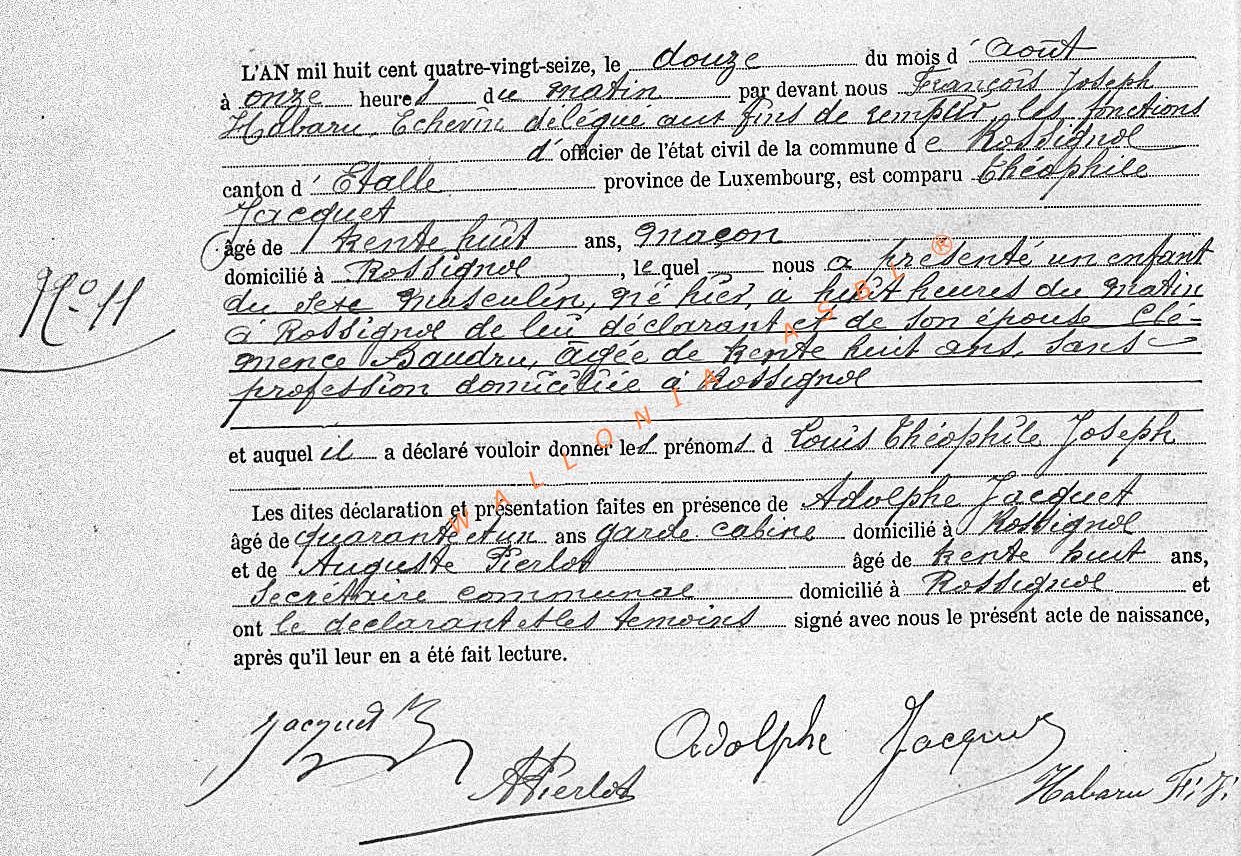 L'AN mil huit cent quatre-vingt-seize, le douze du mois d'août
à onze heures du matin par devant nous François Joseph
Habaru, Echevin délégué aux fins de remplir les fonctions
d'officier de l'état civil de la commune de Rossignol
canton d'Etalle province de Luxembourg, est comparu Théophile
Jacquet
âgé de trente huit ans, maçon
domicilié à Rossignol, lequel nous a présenté un enfant
N° 11
du sexe masculin, né hier, à huit heures du matin
à Rossignol de lui déclarant et de son épouse Clé-
mence Baudru, âgée de trente huit ans, sans
profession domiciliée à Rossignol
et auquel il a déclaré vouloir donner les prénoms d Louis Théophile Joseph
Les dites déclaration et présentation faites en présence de Adolphe Jacquet
âgé de quarante et un ans garde cabine domicilié à Rossignol
et de Auguste Pierlot âgé de trente huit ans,
Secrétaire communal domicilié à Rossignol et
ont le déclarant et les témoins signé avec nous le présent acte de naissance,
après qu'il leur en a été fait lecture.
Jacquet Adolphe Jacquet
APierlot Habaru F.J.
WALLONIA ASBL ®